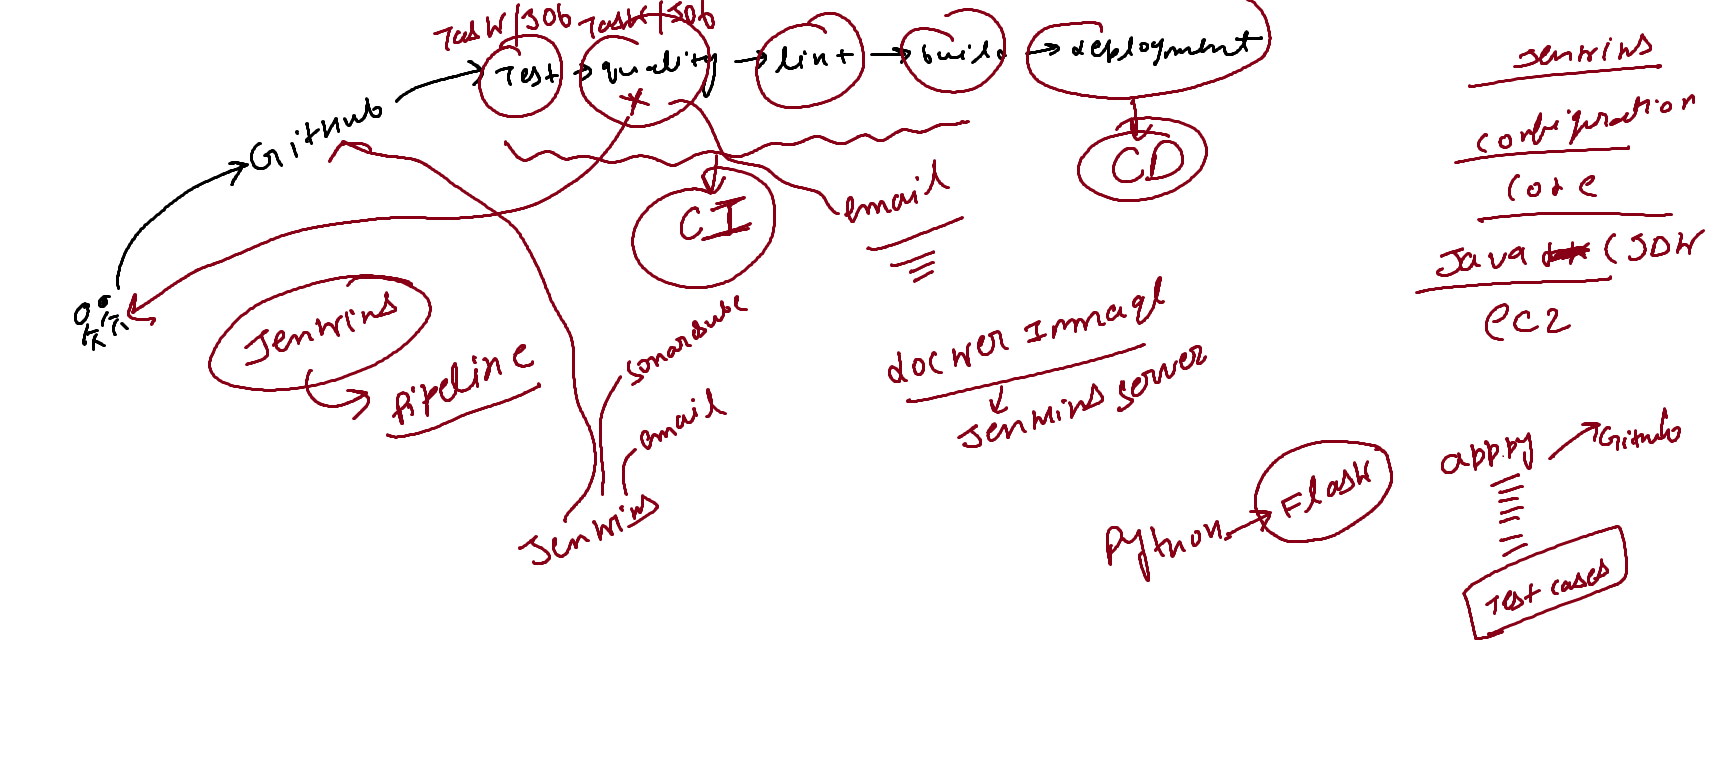 Task/Job Task/Job
Test quality lint build deployment
GitHub
CI
CD
email
Jenkins
pipeline
sonarqube
email
Jenkins
docker Image
Jenkins server
Jenkins
configuration
code
Java (JDK
ec2
Python Flask
app.py GitHub
Test cases